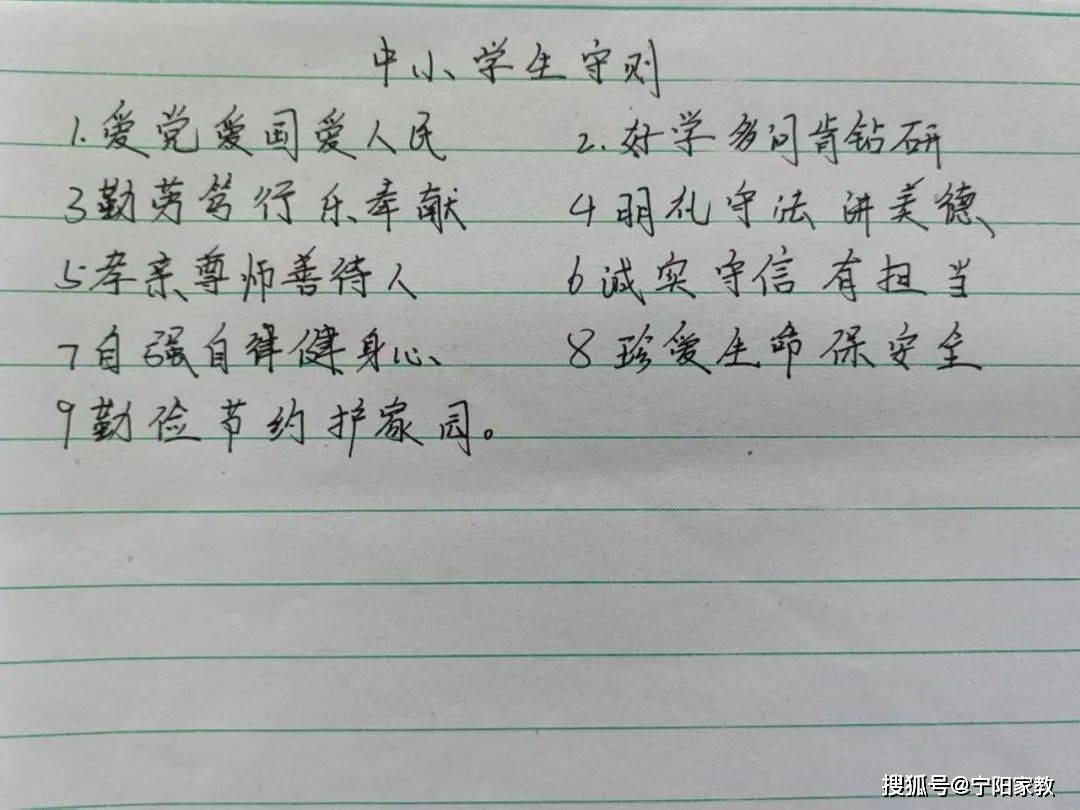 中小学生守则
1.爱党爱国爱人民 2.好学多问肯钻研
3勤劳笃行乐奉献 4明礼守法讲美德
5孝亲尊师善待人 6诚实守信有担当
7自强自律健身心 8珍爱生命保安全
9勤俭节约护家园。
搜狐号@宁阳家教